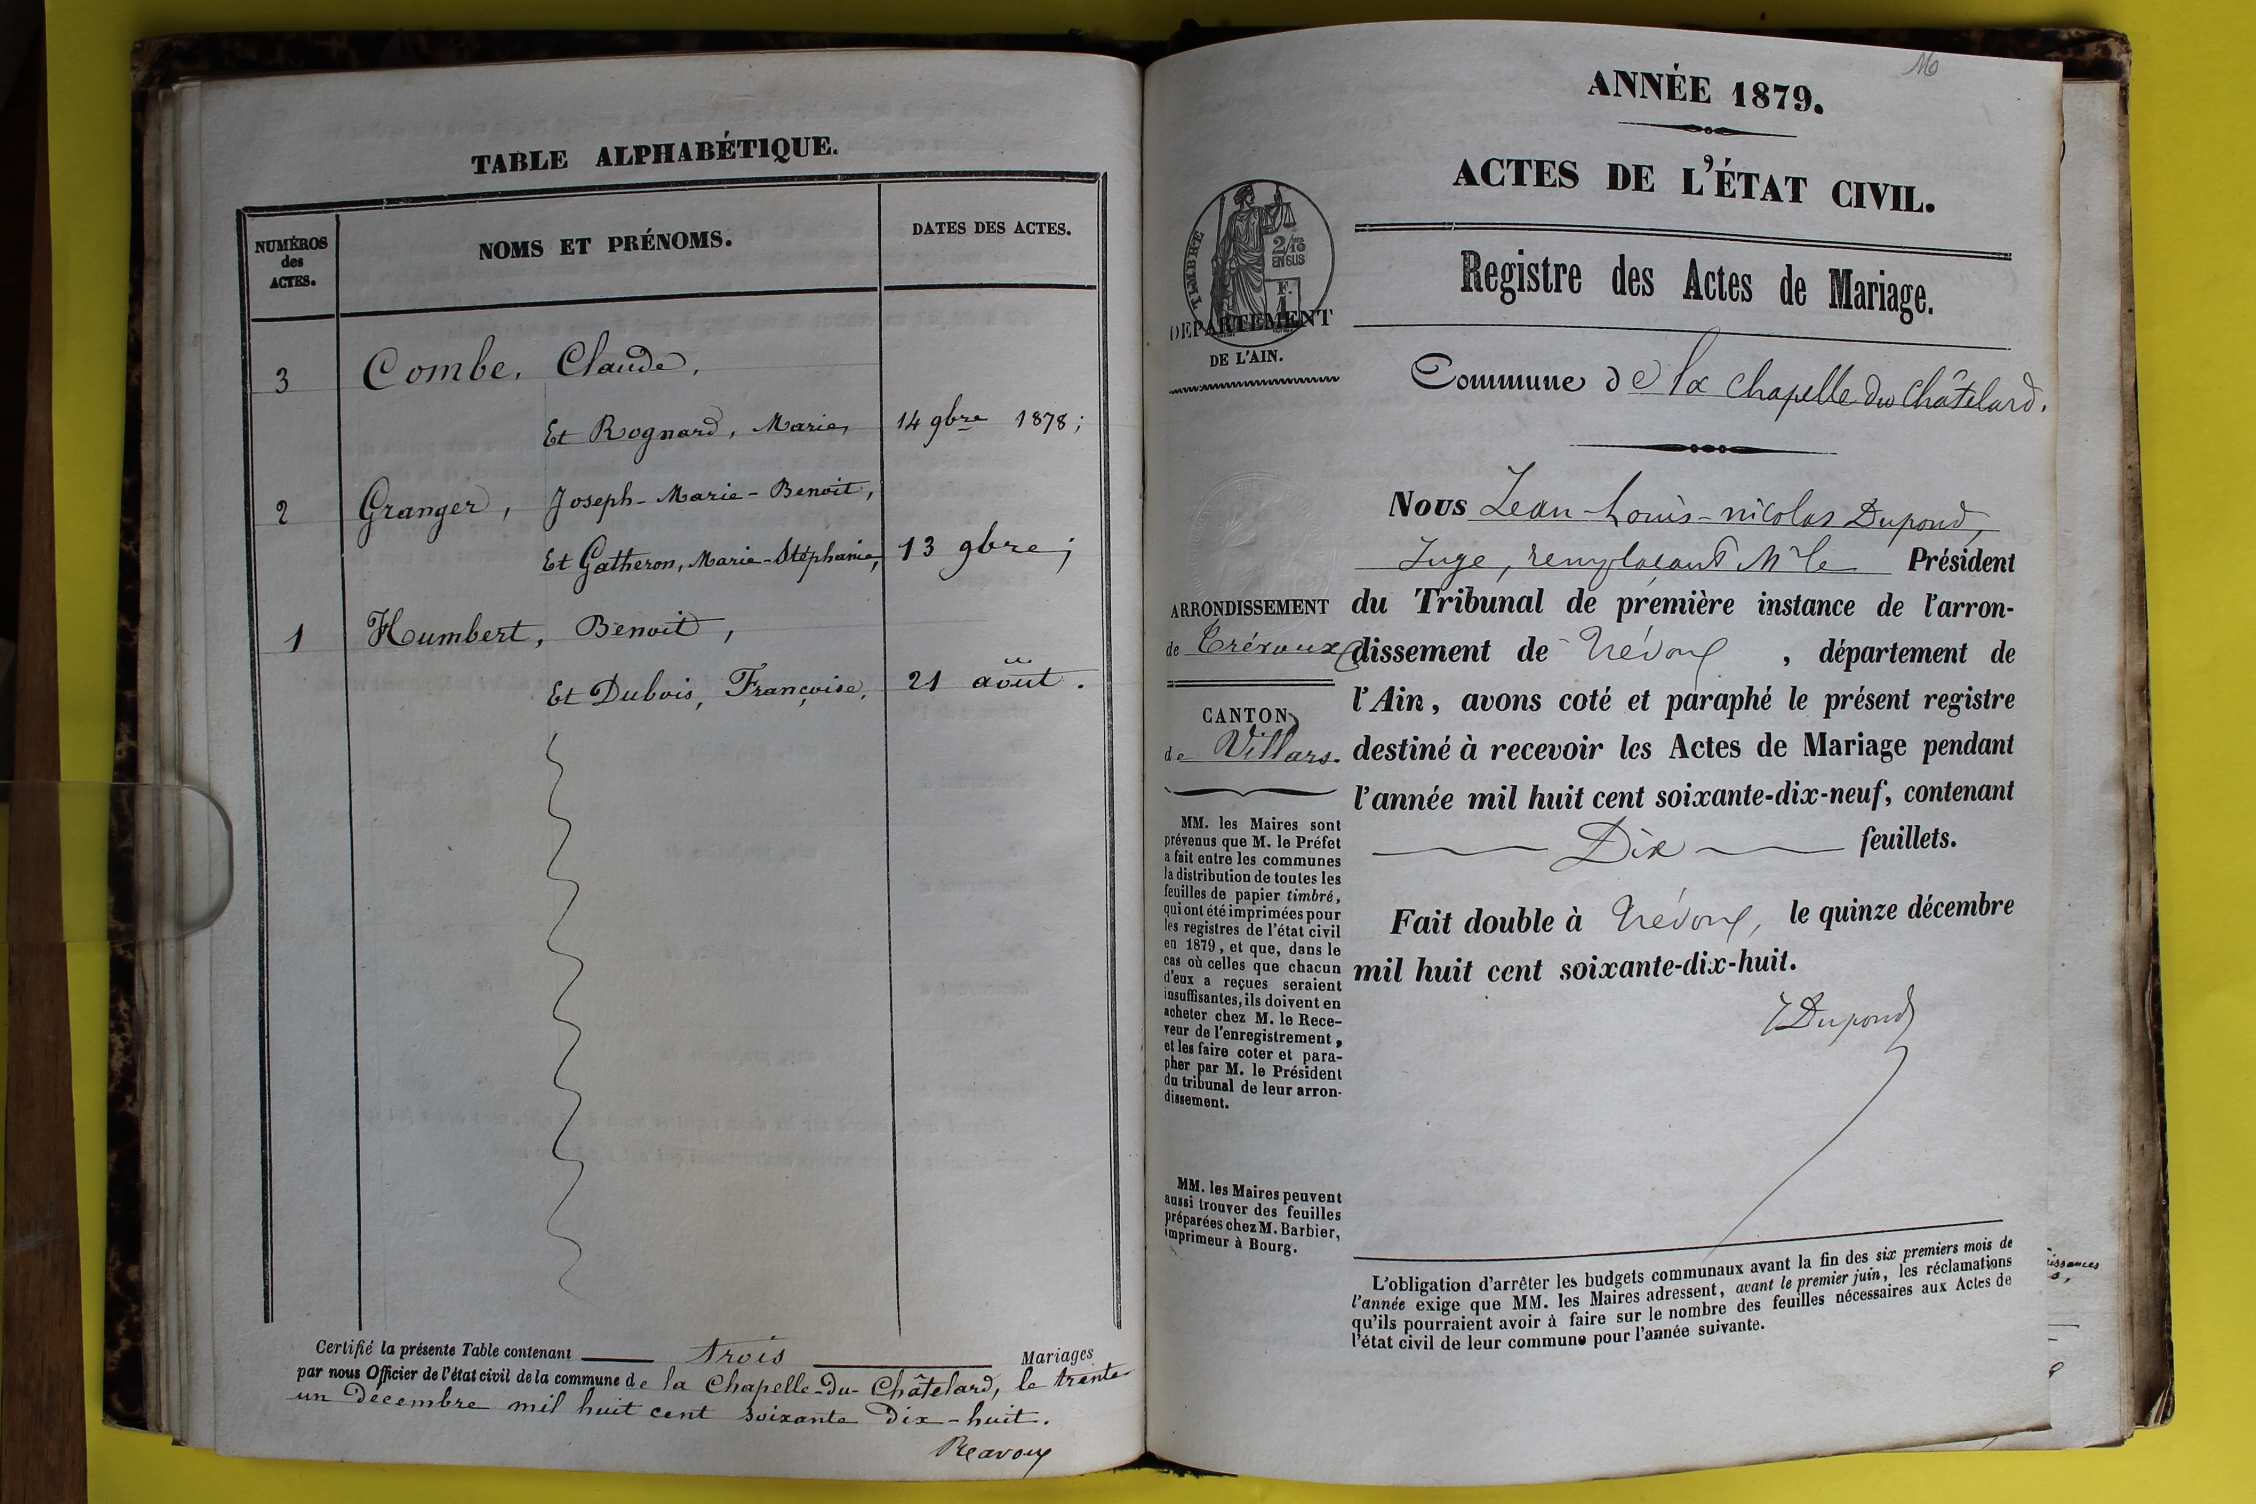 TABLE ALPHABÉTIQUE.
NUMÉROS
des
ACTES.
NOMS ET PRÉNOMS.
DATES DES ACTES.
3 Combe, Claude,
Et Rognard, Marie, 14 9bre 1878;
2 Granger, Joseph-Marie-Benoit,
Et Gatheron, Marie-Stéphanie, 13 9bre;
1 Humbert, Benoit,
Et Dubois, Françoise, 21 août.
Certifié la présente Table contenant trois Mariages
par nous Officier de l'état civil de la commune de la Chapelle-du-Châtelard, le trente
un décembre mil huit cent soixante dix-huit.
ANNÉE 1879.
ACTES DE L'ÉTAT CIVIL.
Registre des Actes de Mariage.
TIMBRE
2/10
EN SUS
F.
1
DÉPARTEMENT
DE L'AIN.
Commune de la Chapelle du Châtelard.
Nous Jean-Louis-nicolas Dupond,
Juge, remplaçant Mr le Président
du Tribunal de première instance de l'arron-
dissement de Trévoux, département de
l'Ain, avons coté et paraphé le présent registre
destiné à recevoir les Actes de Mariage pendant
l'année mil huit cent soixante-dix-neuf, contenant
Dix feuillets.
Fait double à Trévoux, le quinze décembre
mil huit cent soixante-dix-huit.
JDupond
ARRONDISSEMENT
de Trévoux
CANTON
de Villars.
MM. les Maires sont
prévenus que M. le Préfet
a fait entre les communes
la distribution de toutes les
feuilles de papier timbré,
qui ont été imprimées pour
les registres de l'état civil
en 1879, et que, dans le
cas où celles que chacun
d'eux a reçues seraient
insuffisantes, ils doivent en
acheter chez M. le Rece-
veur de l'enregistrement,
et les faire coter et para-
pher par M. le Président
du tribunal de leur arron-
dissement.
MM. les Maires peuvent
aussi trouver des feuilles
préparées chez M. Barbier,
imprimeur à Bourg.
L'obligation d'arrêter les budgets communaux avant la fin des six premiers mois de
l'année exige que MM. les Maires adressent, avant le premier juin, les réclamations
qu'ils pourraient avoir à faire sur le nombre des feuilles nécessaires aux Actes de
l'état civil de leur commune pour l'année suivante.